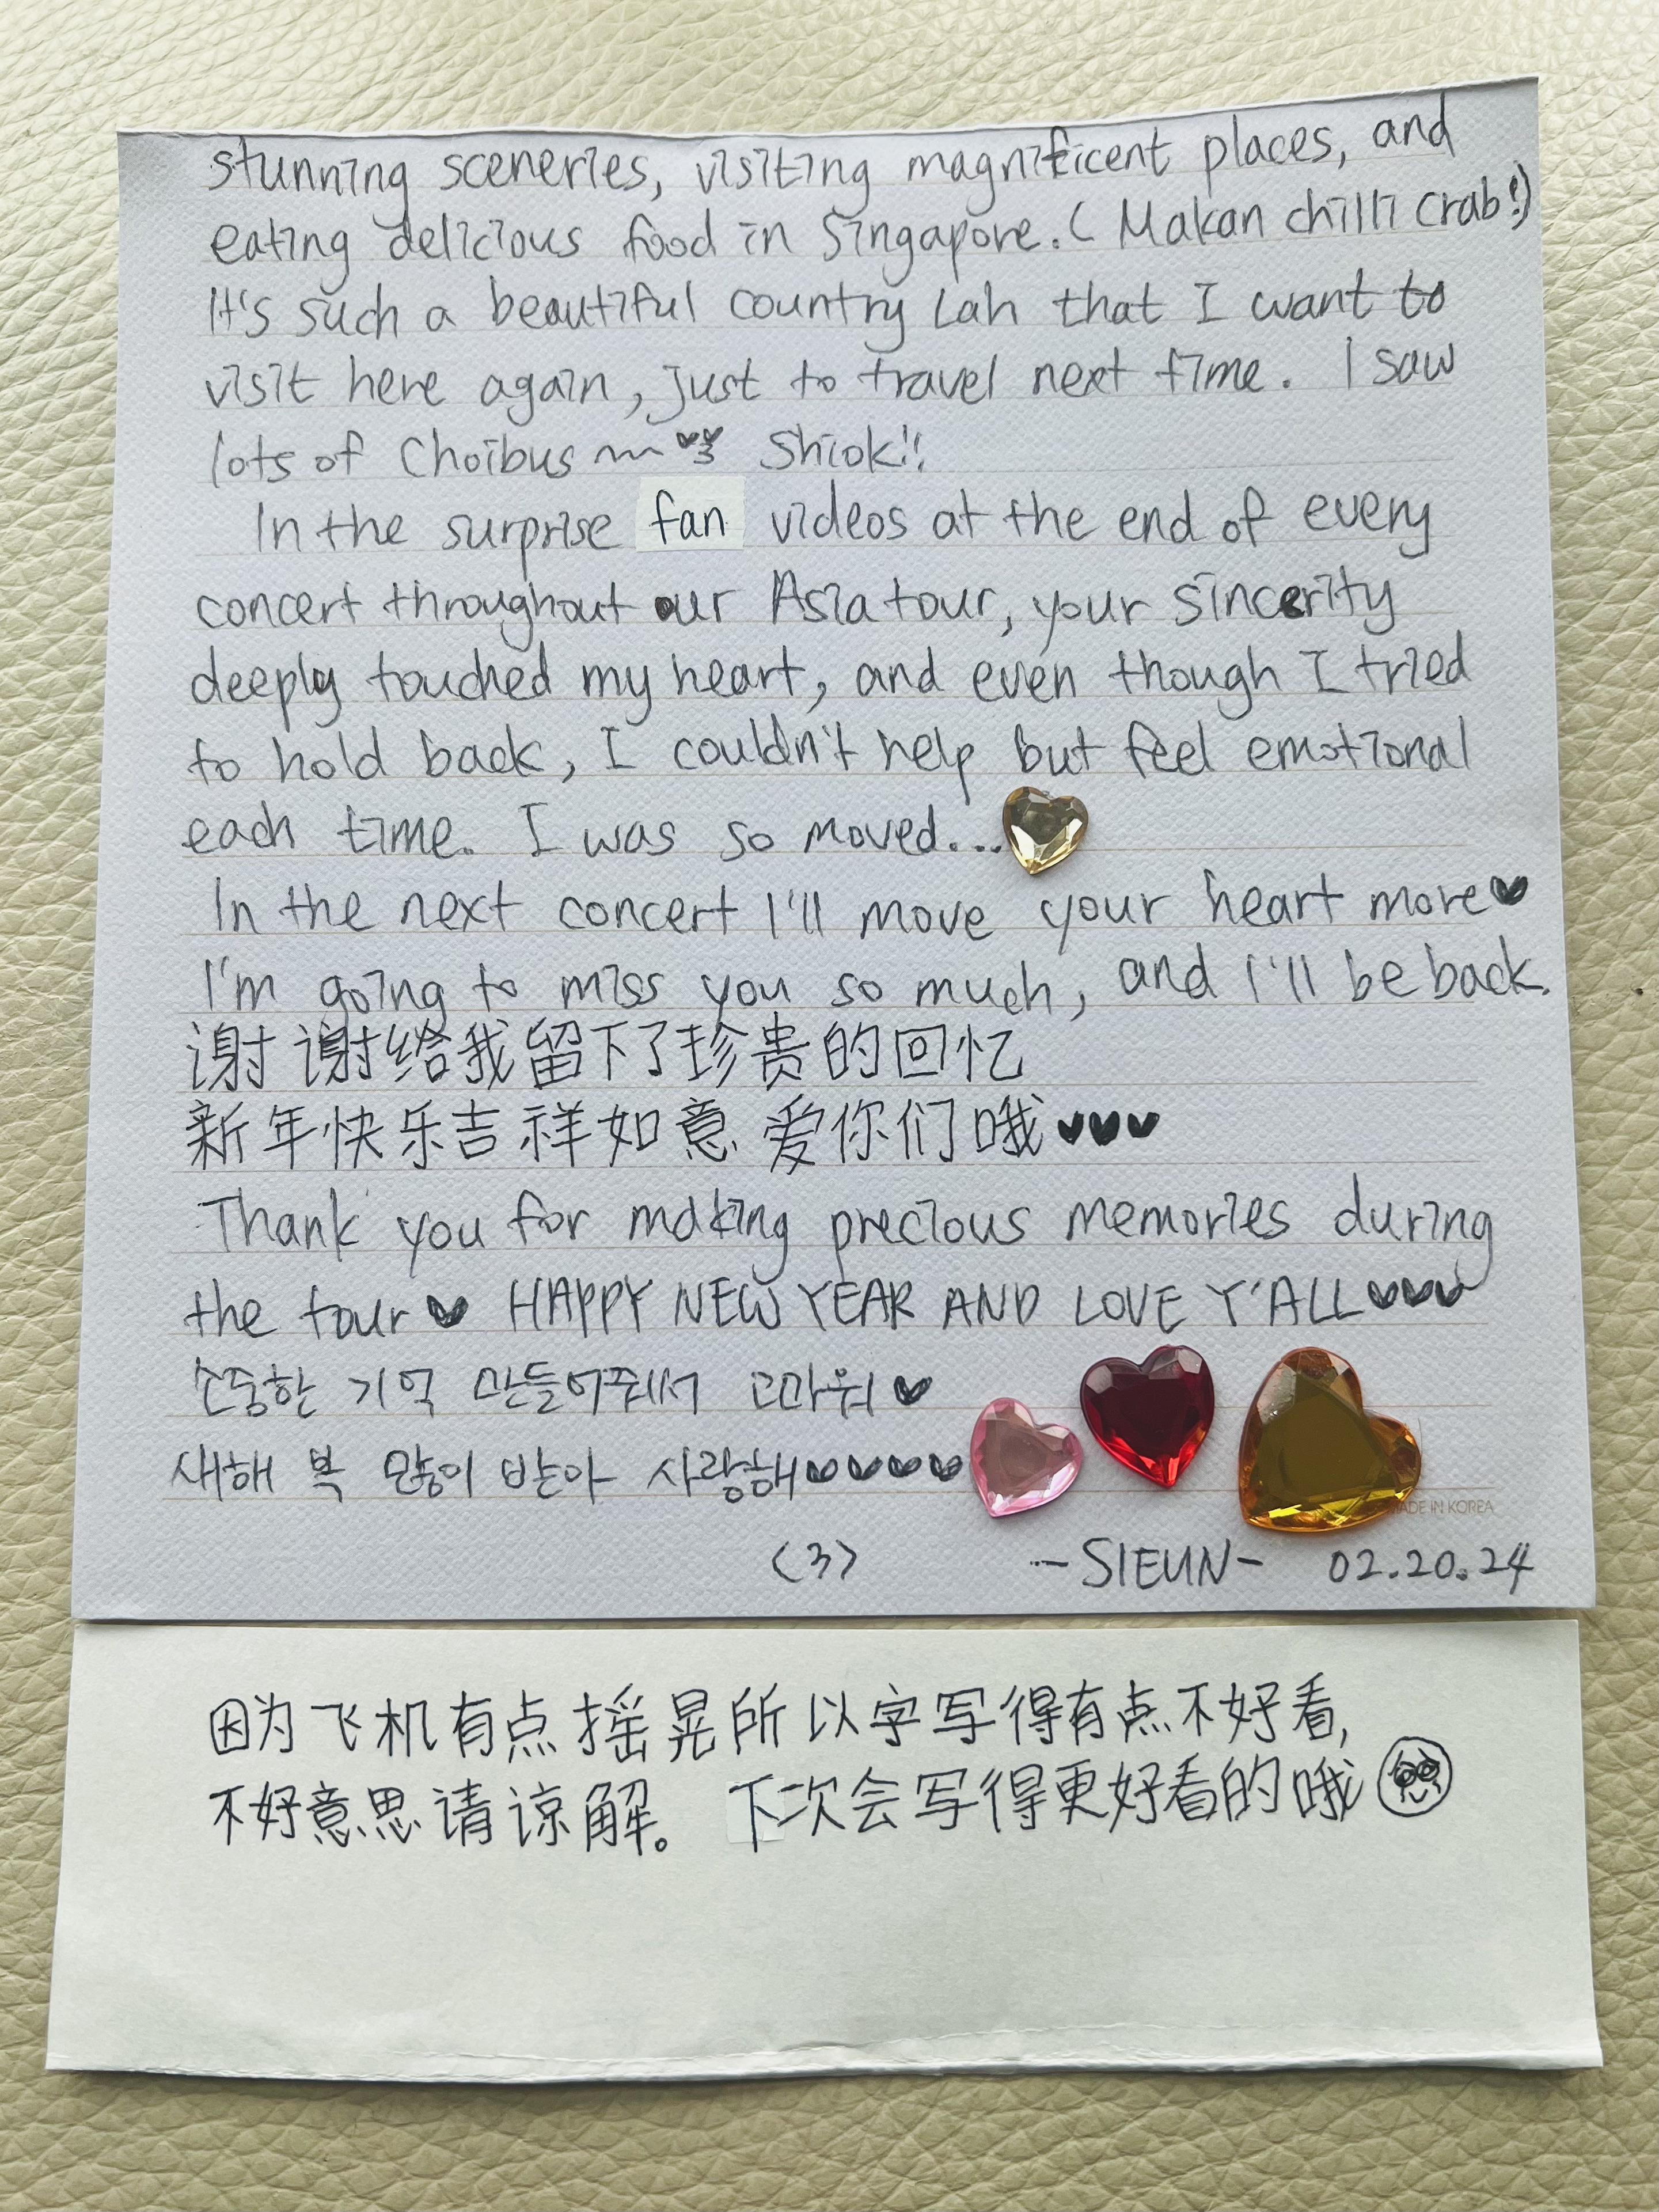 stunning sceneries, visiting magnificent places, and
eating delicious food in Singapore. (Makan chilli crab!)
It's such a beautiful country Lah that I want to
visit here again, just to travel next time. I saw
lots of Choibus ~~ Shiok!!
In the surprise fan videos at the end of every
concert throughout our Asia tour, your sincerity
deeply touched my heart, and even though I tried
to hold back, I couldn't help but feel emotional
each time. I was so moved...
In the next concert I'll move your heart more♥
I'm going to miss you so much, and I'll be back.
谢谢给我留下了珍贵的回忆
新年快乐吉祥如意 爱你们哦♥♥♥
Thank you for making precious memories during
the tour♥ HAPPY NEW YEAR AND LOVE Y'ALL♥♥♥
소중한 기억 만들어줘서 고마워♥
새해 복 많이 받아 사랑해♥♥♥♥
MADE IN KOREA
(3) -SIEUN- 02.20.24
因为飞机有点摇晃所以字写得有点不好看,
不好意思请谅解。 下次会写得更好看的哦